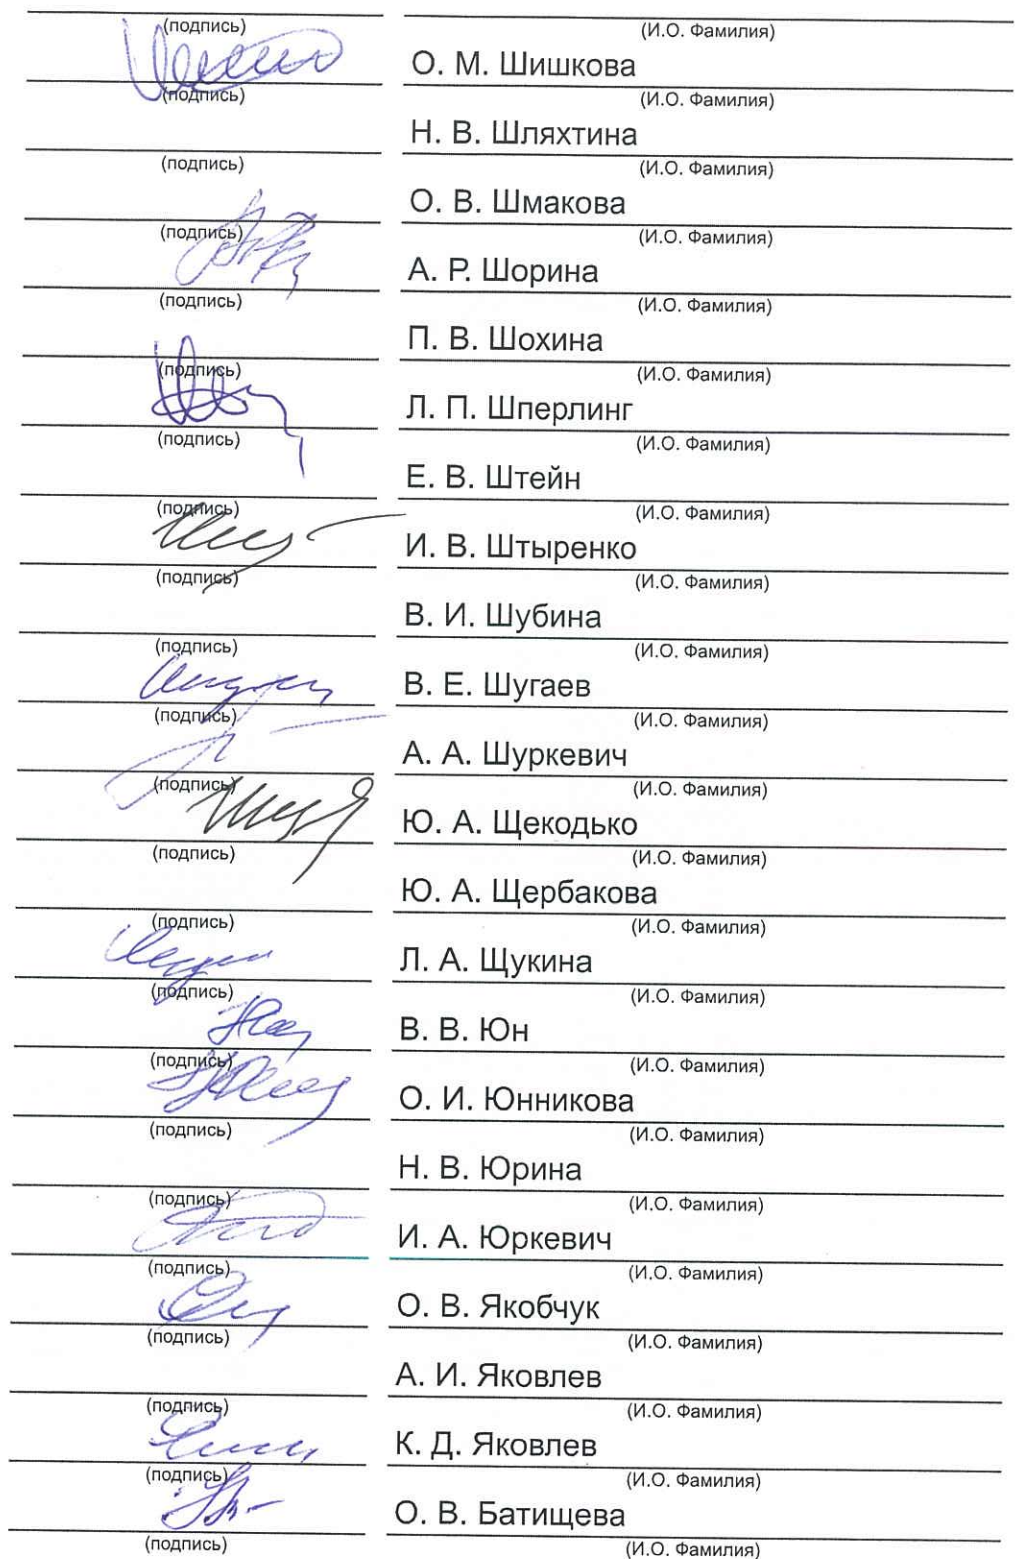 (подпись) (И.О. Фамилия)
О. М. Шишкова
(подпись) (И.О. Фамилия)
Н. В. Шляхтина
(подпись) (И.О. Фамилия)
О. В. Шмакова
(подпись) (И.О. Фамилия)
А. Р. Шорина
(подпись) (И.О. Фамилия)
П. В. Шохина
(подпись) (И.О. Фамилия)
Л. П. Шперлинг
(подпись) (И.О. Фамилия)
Е. В. Штейн
(подпись) (И.О. Фамилия)
И. В. Штыренко
(подпись) (И.О. Фамилия)
В. И. Шубина
(подпись) (И.О. Фамилия)
В. Е. Шугаев
(подпись) (И.О. Фамилия)
А. А. Шуркевич
(подпись) (И.О. Фамилия)
Ю. А. Щекодько
(подпись) (И.О. Фамилия)
Ю. А. Щербакова
(подпись) (И.О. Фамилия)
Л. А. Щукина
(подпись) (И.О. Фамилия)
В. В. Юн
(подпись) (И.О. Фамилия)
О. И. Юнникова
(подпись) (И.О. Фамилия)
Н. В. Юрина
(подпись) (И.О. Фамилия)
И. А. Юркевич
(подпись) (И.О. Фамилия)
О. В. Якобчук
(подпись) (И.О. Фамилия)
А. И. Яковлев
(подпись) (И.О. Фамилия)
К. Д. Яковлев
(подпись) (И.О. Фамилия)
О. В. Батищева
(подпись) (И.О. Фамилия)